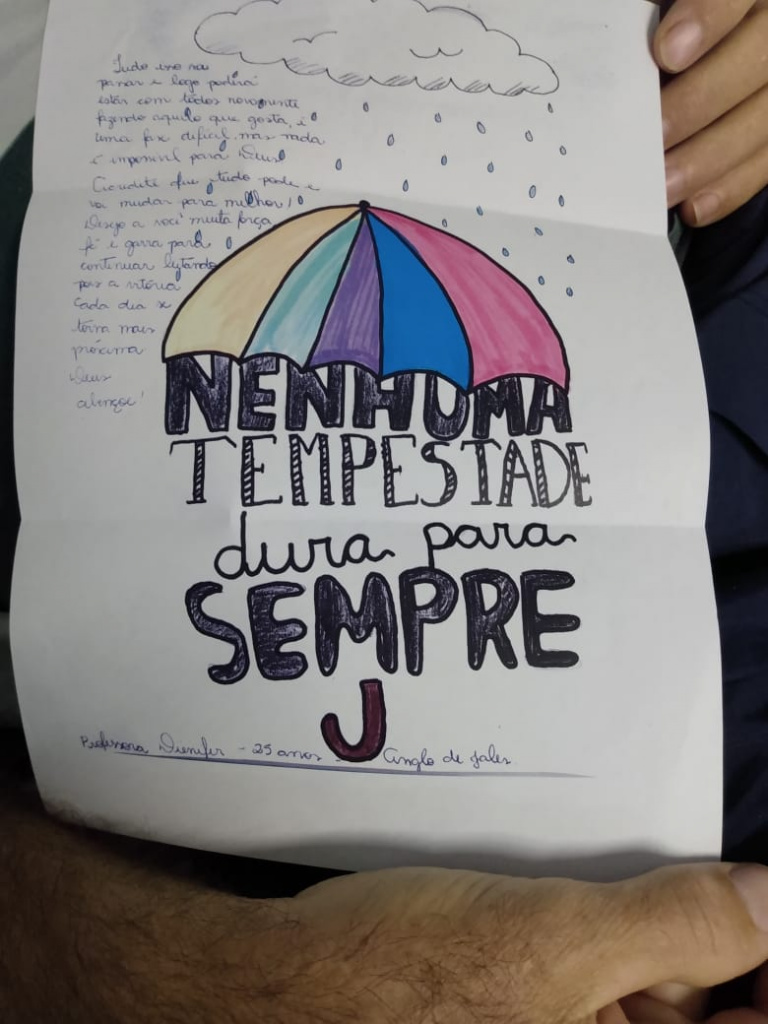 Tudo isso vai
passar e logo poderá
estar com todos novamente
fazendo aquilo que gosta, é
uma fase difícil mas nada
é impossível para Deus
Acredite que tudo pode e
vai mudar para melhor!
Desejo a você muita força
fé e garra para
continuar lutando
por a vitória
Cada dia se
torna mais
próxima
Deus
abençoe!
NENHUMA
TEMPESTADE
dura para
SEMPRE
Professora Dienifer - 25 anos - Anglo de Jales.